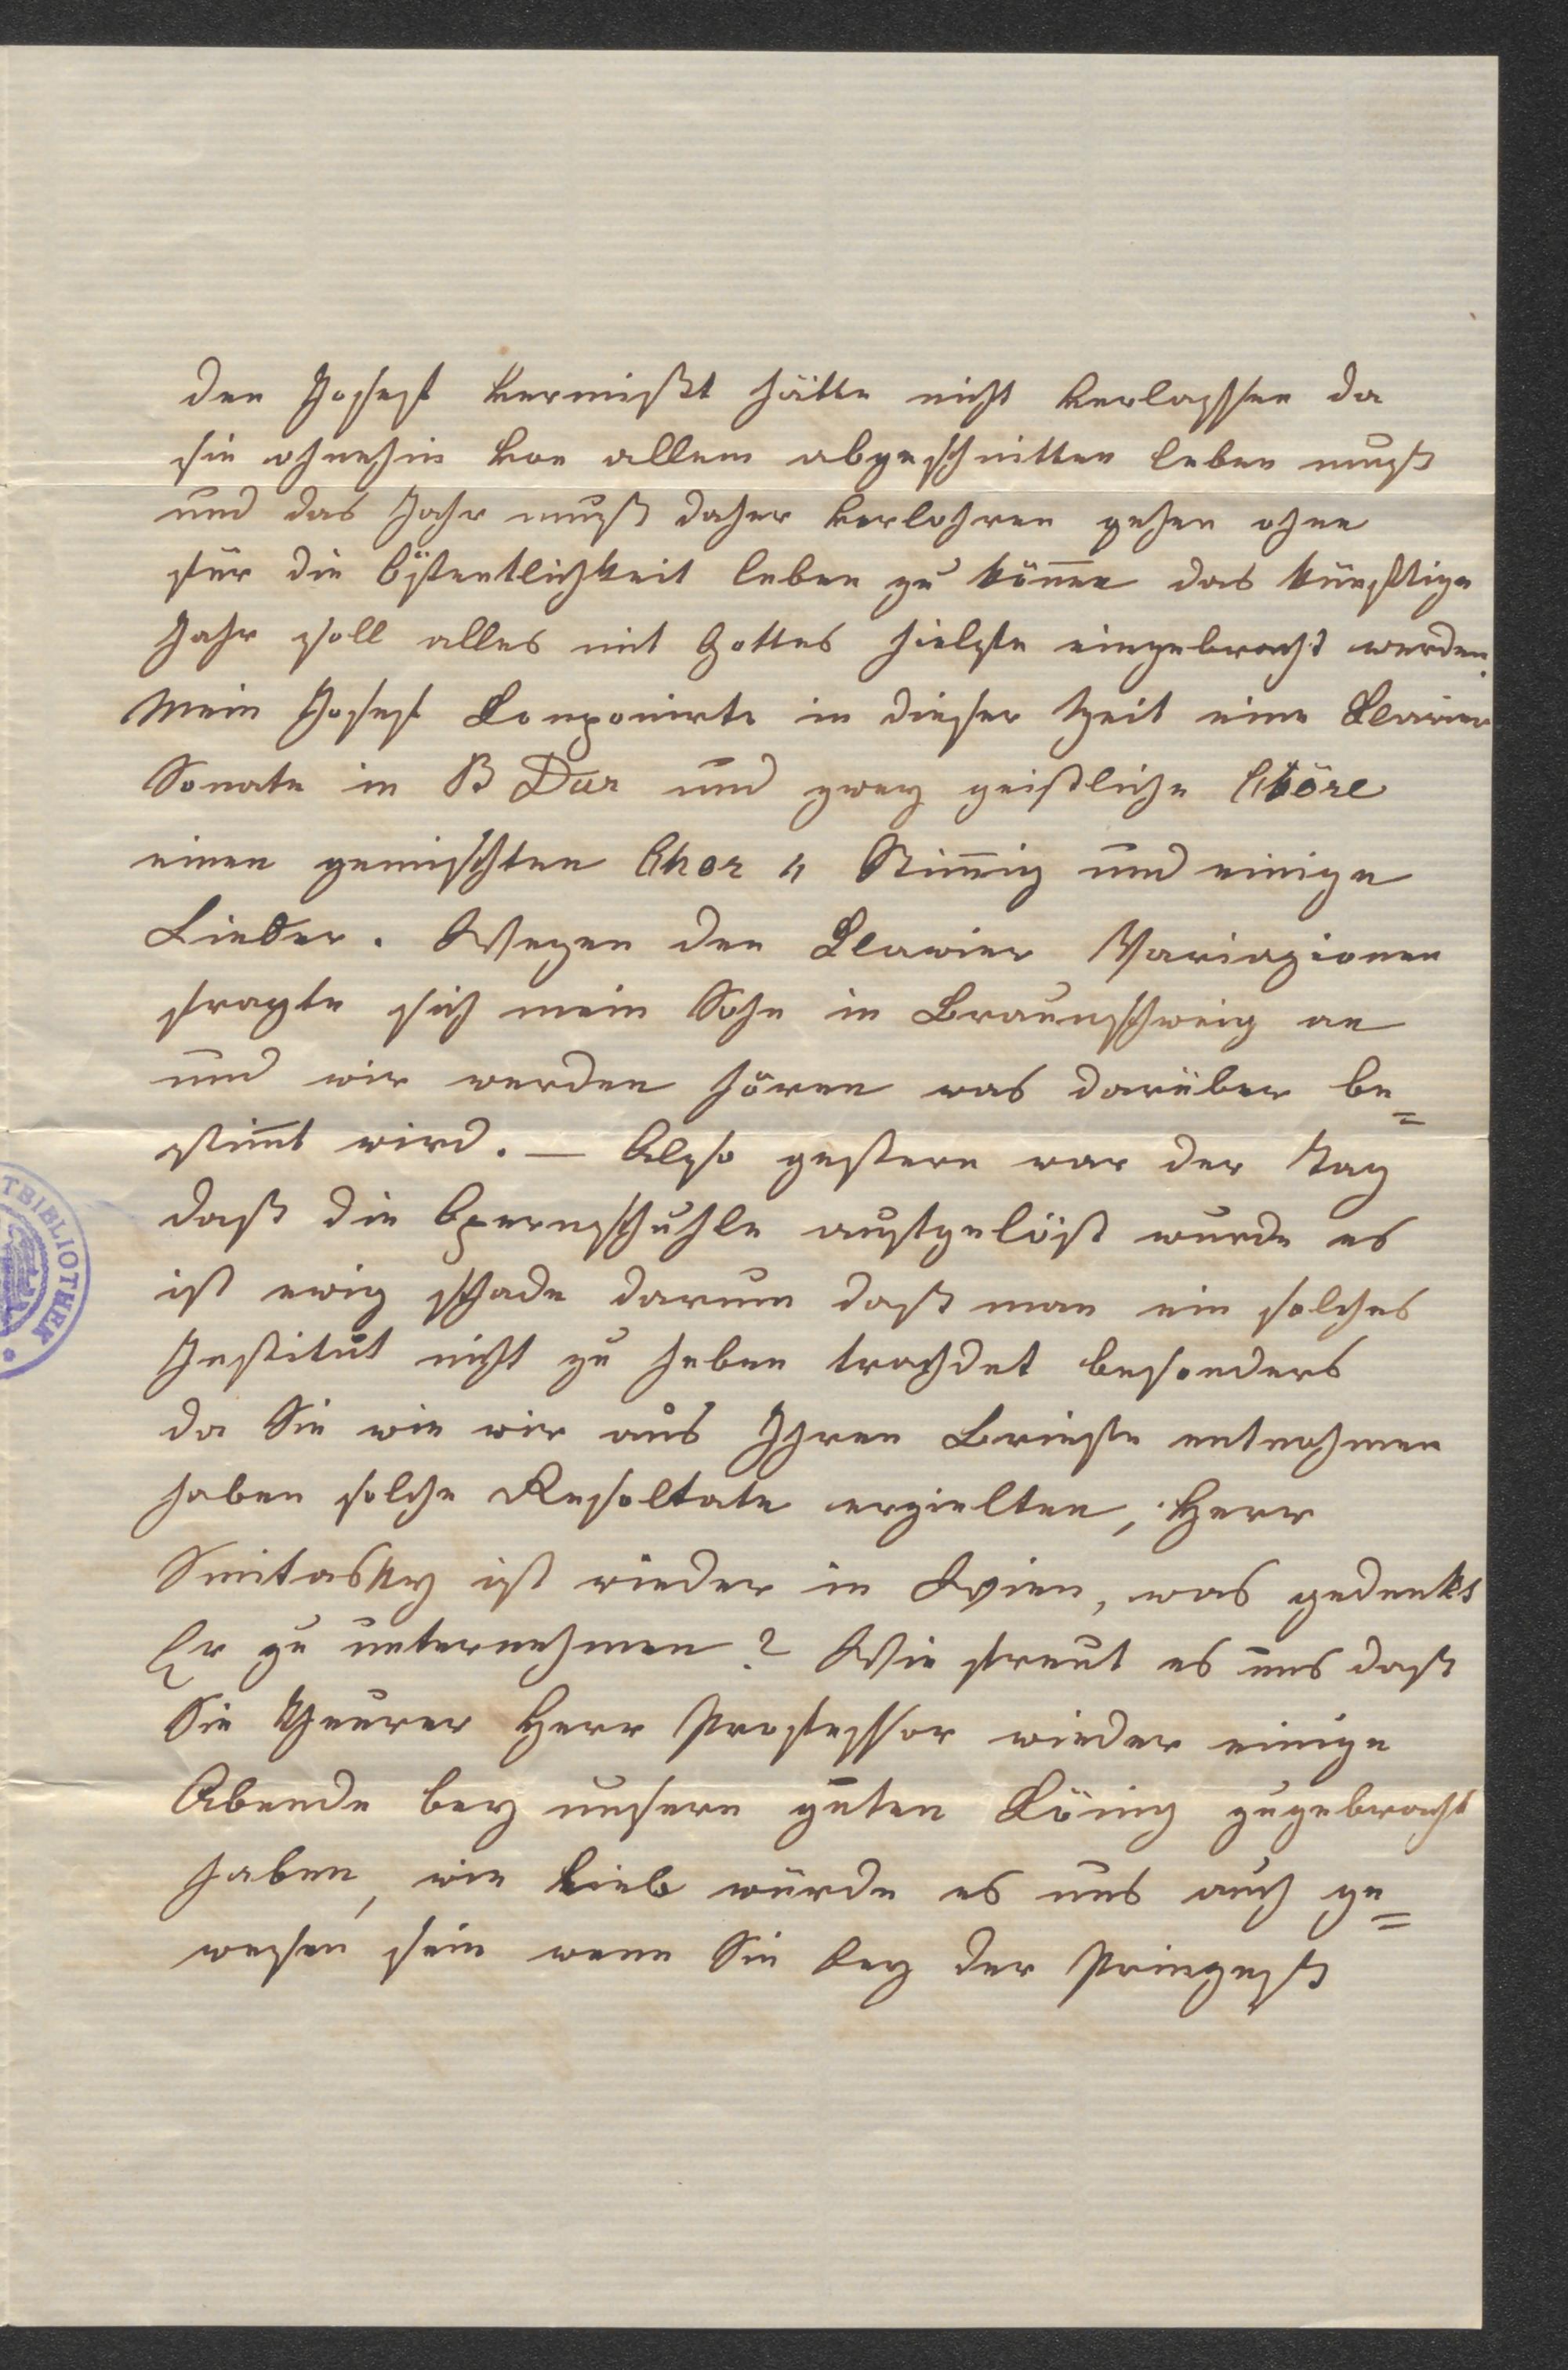 den Josef vermißt hätte nicht verlassen da
sie ohnehin von allem abgeschnitten leben muß
und das Jahr muß daher verlohren gehen ohne
für die Öffentlichkeit leben zu können das künftige
Jahr soll alles mit Gottes Hielfe eingebracht werden.
Mein Josef Componirte in dieser Zeit eine Clavier
Sonate in B Dur und zwey geistliche Chöre
einen gemischten Chor 4 Stimmig und einige
Lieder. Wegen den Clavier Variazionen
fragte sich mein Sohn in Braunschweig an
und wir werden hören was darüber be=
stimmt wird. — Also gestern war der Tag
daß die Opernschuhle aufgelöst wurde es
ist ewig schade darum daß man ein solches
Institut nicht zu heben trachdet besonders
da Sie wie wir aus Ihren Briefe entnohmen
haben solche Resoltate erzielten, Herr
Smitasky ist wieder in Wien, was gedenkt
Er zu unternehmen? Wie freut es uns daß
Sie Theurer Herr Professor wieder einige
Abende bey unsern guten König zugebracht
haben, wie lieb würde es uns auch ge=
wesen sein wenn Sie bey der Prinzeß
TBIBLIOTHEK